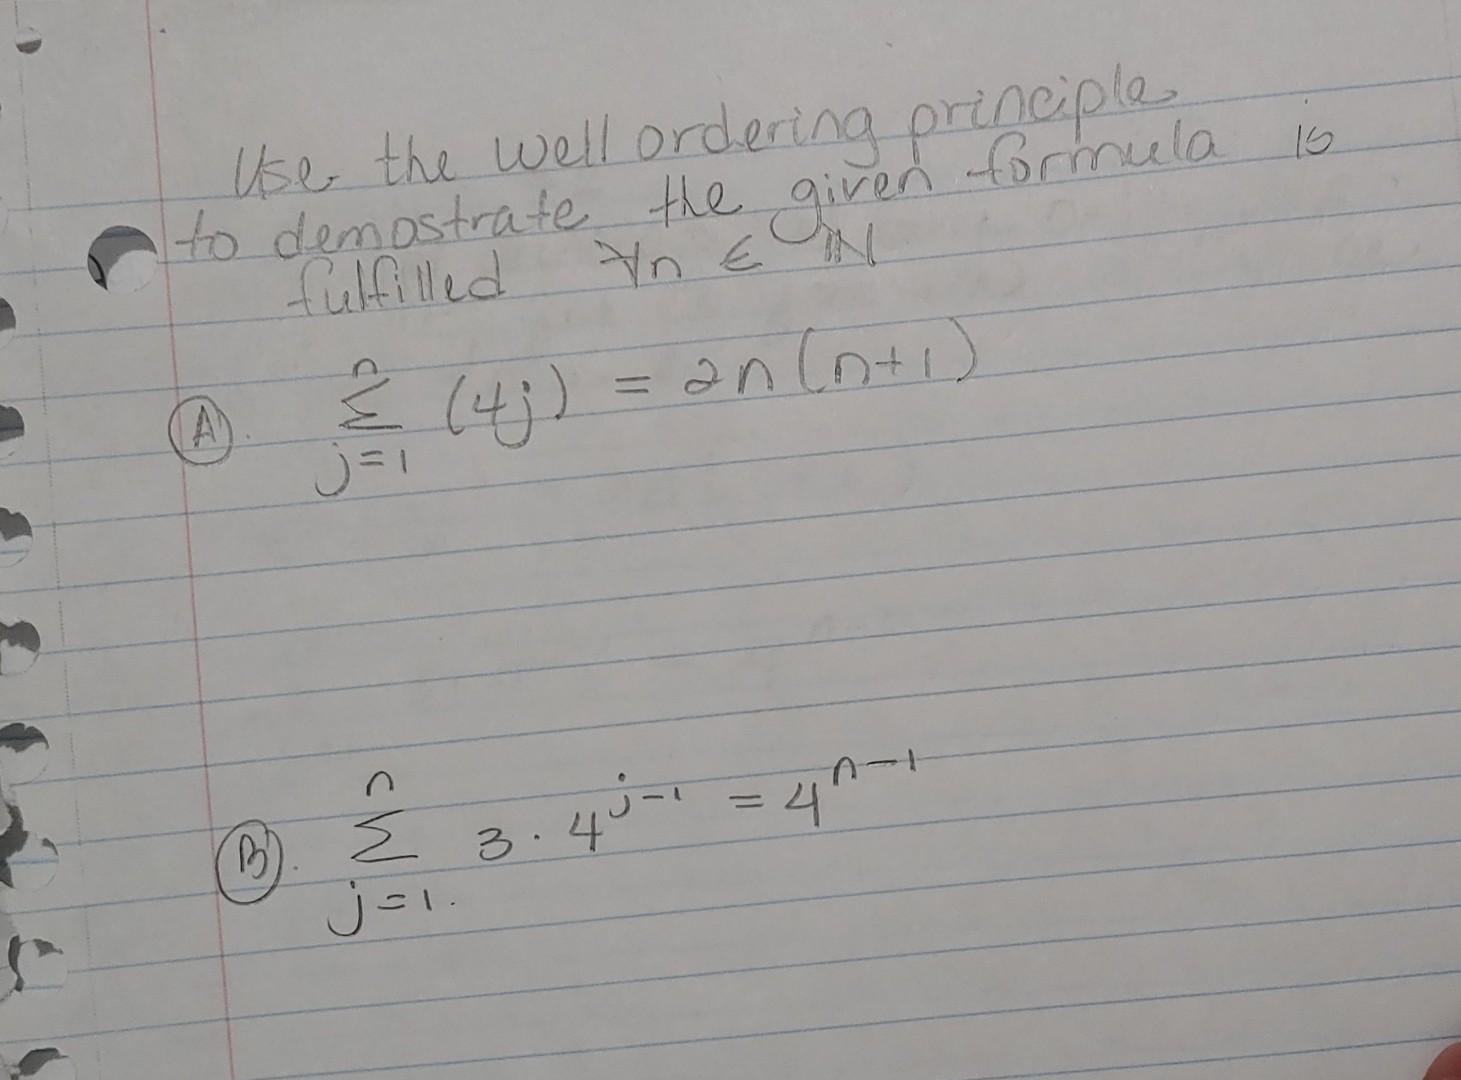 Use the well ordering principle
to demostrate the given formula is
fulfilled ∀n ∈ ℕ
(A). n Σ j=1 (4j) = 2n(n+1)
(B). n Σ j=1. 3 · 4^{j-1} = 4^{n-1}